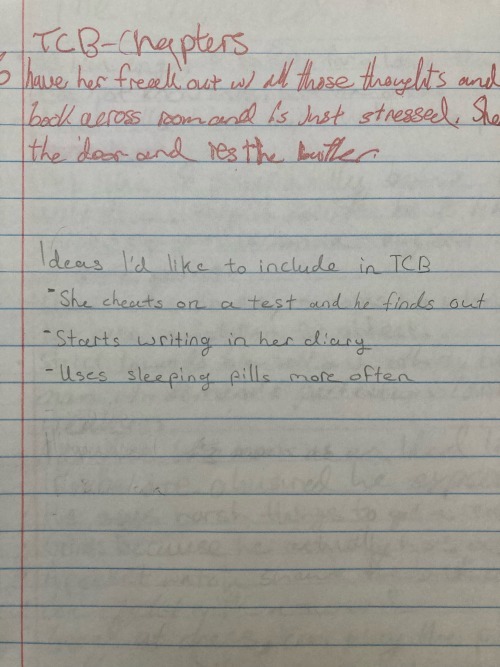 TCB-Chapters
have her freak out w/ all those thoughts and
book across room and is just stressed. She
the door and its the butler.
Ideas I'd like to include in TCB
-She cheats on a test and he finds out
-Starts writing in her diary
-Uses sleeping pills more often